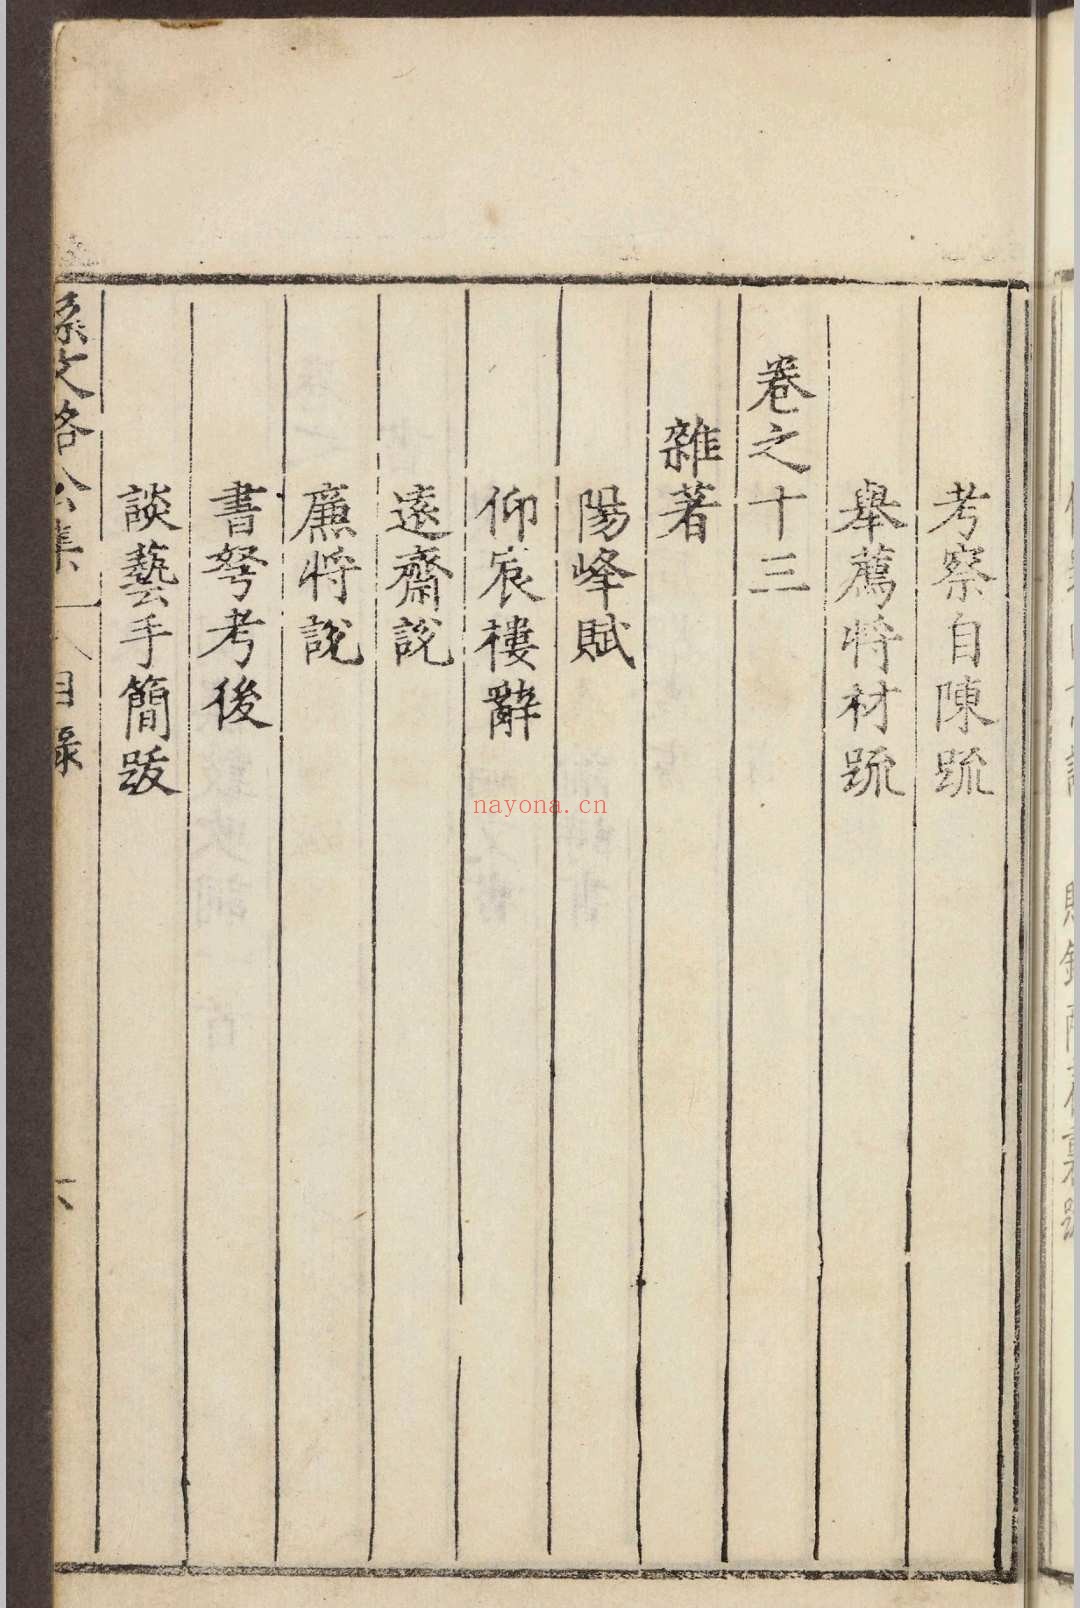 考察自陳䟽
舉薦將材䟽
卷之十三
雜著
陽峰賦
仰宸樓辭
遠齋說
廉將說
書弩考後
談藝手簡跋
孫文恪公集
目錄
六
nayona.cn